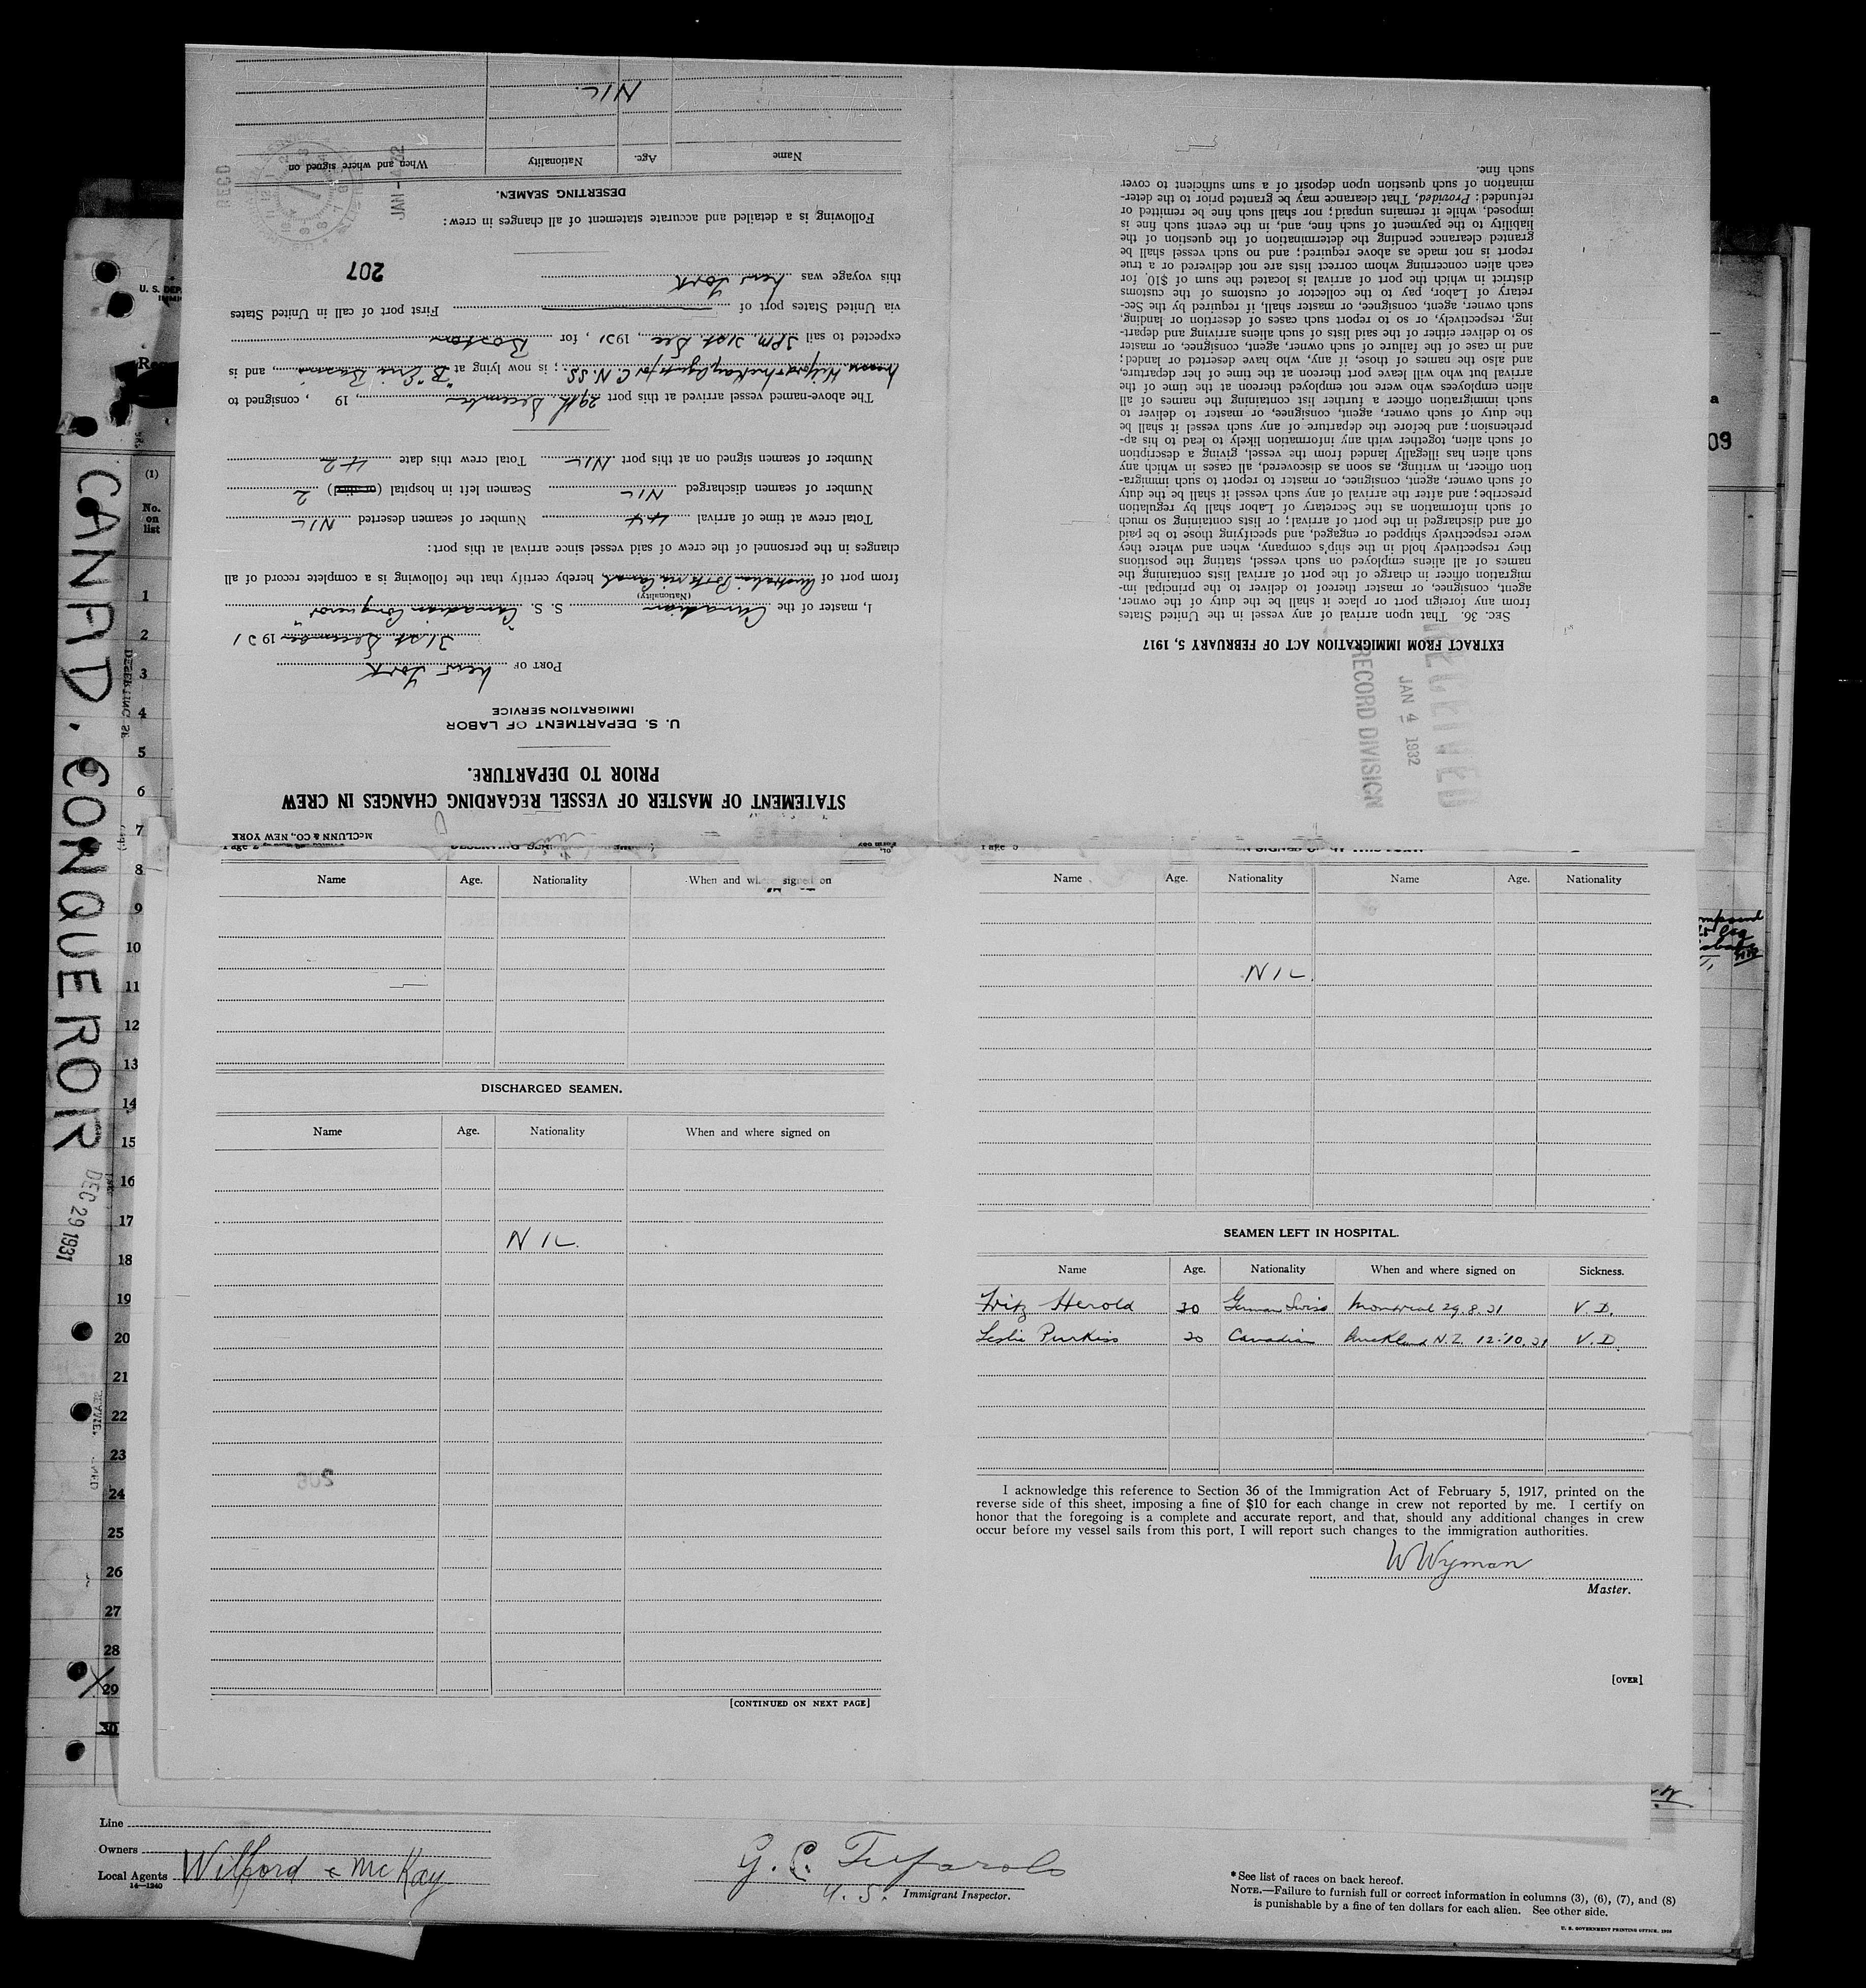 McCLUNN & CO., NEW YORK
STATEMENT OF MASTER OF VESSEL REGARDING CHANGES IN CREW
PRIOR TO DEPARTURE.
U. S. DEPARTMENT OF LABOR
IMMIGRATION SERVICE
PORT OF New York
31st December 1931
I, master of the Canadian S. S. "Canadian Conqueror"
(Nationality)
from port of Australia hereby certify that the following is a complete record of all
changes in the personnel of the crew of said vessel since arrival at this port:
Total crew at time of arrival 44 Number of seamen deserted NIL
Number of seamen discharged NIL Seamen left in hospital (or died) 2
Number of seamen signed on at this port NIL Total crew this date 42
The above-named vessel arrived at this port 29th December, 19 , consigned to
is now lying at "B" Erie Basin, and is
expected to sail 3 P.M. 31st Dec, 1931, for Boston
via United States port of First port of call in United States
this voyage was New York
207
Following is a detailed and accurate statement of all changes in crew:
DESERTING SEAMEN.
Name Age. Nationality When and where signed on
NIL
REC'D
JAN -4 32
EXTRACT FROM IMMIGRATION ACT OF FEBRUARY 5, 1917
SEC. 36. That upon arrival of any vessel in the United States
from any foreign port or place it shall be the duty of the owner,
agent, consignee, or master thereof to deliver to the principal im-
migration officer in charge of the port of arrival lists containing the
names of all aliens employed on such vessel, stating the positions
they respectively hold in the ship's company, when and where they
were respectively shipped or engaged, and specifying those to be paid
off and discharged in the port of arrival; or lists containing so much
of such information as the Secretary of Labor shall by regulation
prescribe; and after the arrival of any such vessel it shall be the duty
of such owner, agent, consignee, or master to report to such immigra-
tion officer, in writing, as soon as discovered, all cases in which any
such alien has illegally landed from the vessel, giving a description
of such alien, together with any information likely to lead to his ap-
prehension; and before the departure of any such vessel it shall be
the duty of such owner, agent, consignee, or master to deliver to
such immigration officer a further list containing the names of all
alien employees who were not employed thereon at the time of the
arrival but who will leave port thereon at the time of her departure,
and also the names of those, if any, who have deserted or landed;
and in case of the failure of such owner, agent, consignee, or master
so to deliver either of the said lists of such aliens arriving and depart-
ing, respectively, or so to report such cases of desertion or landing,
such owner, agent, consignee, or master shall, if required by the Sec-
retary of Labor, pay to the collector of customs of the customs
district in which the port of arrival is located the sum of $10 for
each alien concerning whom correct lists are not delivered or a true
report is not made as above required; and no such vessel shall be
granted clearance pending the determination of the question of the
liability to the payment of such fine, and, in the event such fine is
imposed, while it remains unpaid; nor shall such fine be remitted or
refunded: Provided, That clearance may be granted prior to the deter-
mination of such question upon deposit of a sum sufficient to cover
such fine.
RECEIVED
JAN 4 1932
RECORD DIVISION
CANAD. CONQUEROR
DEC 29 1931
(1)
No. on list
1
2
3
4
5
6
7
8
9
10
11
12
13
14
15
16
17
18
19
20
21
22
23
24
25
26
27
28
29
30
Name Age. Nationality When and where signed on
DISCHARGED SEAMEN.
Name Age. Nationality When and where signed on
NIL.
[CONTINUED ON NEXT PAGE]
Name Age. Nationality Name Age. Nationality
NIL.
SEAMEN LEFT IN HOSPITAL.
Name Age. Nationality When and where signed on Sickness.
Fritz Herold 30 German Swiss Montreal 29.8.31 V.D.
Leslie Purkiss 20 Canadian Auckland N.Z. 12.10.31 V.D.
I acknowledge this reference to Section 36 of the Immigration Act of February 5, 1917, printed on the
reverse side of this sheet, imposing a fine of $10 for each change in crew not reported by me. I certify on
honor that the foregoing is a complete and accurate report, and that, should any additional changes in crew
occur before my vessel sails from this port, I will report such changes to the immigration authorities.
W Wyman
Master.
[OVER]
Line
Owners
Local Agents Wilford & McKay
14—1240
U. S. Immigrant Inspector.
*See list of races on back hereof.
NOTE.—Failure to furnish full or correct information in columns (3), (6), (7), and (8)
is punishable by a fine of ten dollars for each alien. See other side.
U. S. GOVERNMENT PRINTING OFFICE